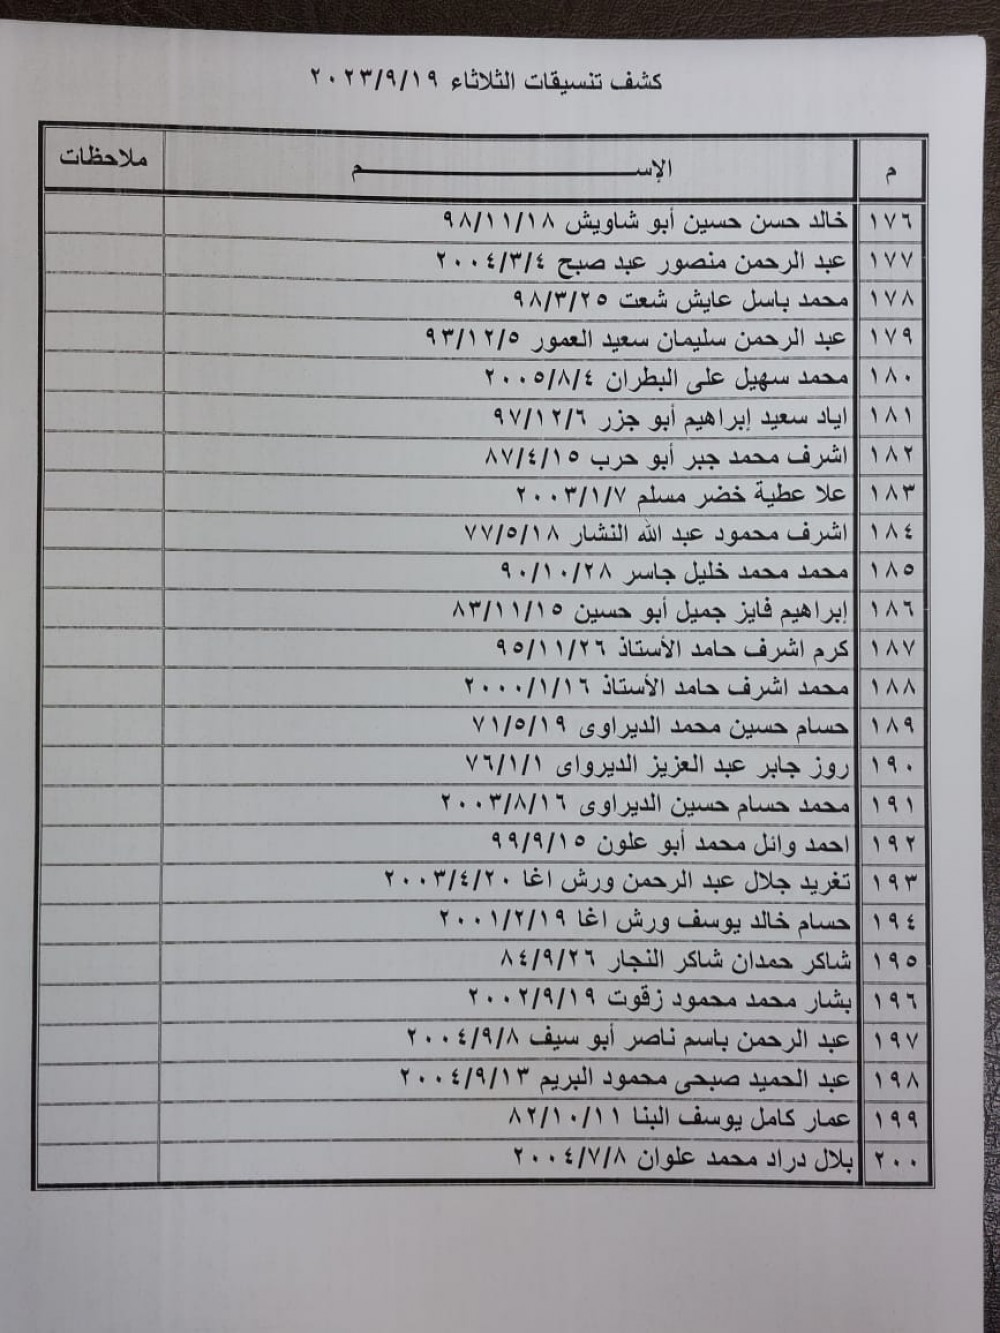 كشف تنسيقات الثلاثاء ٢٠٢٣/٩/١٩
م الإســـــــــــــــــــــــم ملاحظات
١٧٦ خالد حسن حسين أبو شاويش ٩٨/١١/١٨
١٧٧ عبد الرحمن منصور عبد صبح ٢٠٠٤/٣/٤
١٧٨ محمد باسل عايش شعت ٩٨/٣/٢٥
١٧٩ عبد الرحمن سليمان سعيد العمور ٩٣/١٢/٥
١٨٠ محمد سهيل على البطران ٢٠٠٥/٨/٤
١٨١ اياد سعيد إبراهيم أبو جزر ٩٧/١٢/٦
١٨٢ اشرف محمد جبر أبو حرب ٨٧/٤/١٥
١٨٣ علا عطية خضر مسلم ٢٠٠٣/١/٧
١٨٤ اشرف محمود عبد الله النشار ٧٧/٥/١٨
١٨٥ محمد محمد خليل جاسر ٩٠/١٠/٢٨
١٨٦ إبراهيم فايز جميل أبو حسين ٨٣/١١/١٥
١٨٧ كرم اشرف حامد الأستاذ ٩٥/١١/٢٦
١٨٨ محمد اشرف حامد الأستاذ ٢٠٠٠/١/١٦
١٨٩ حسام حسين محمد الديراوى ٧١/٥/١٩
١٩٠ روز جابر عبد العزيز الديرواى ٧٦/١/١
١٩١ محمد حسام حسين الديراوى ٢٠٠٣/٨/١٦
١٩٢ احمد وائل محمد أبو علون ٩٩/٩/١٥
١٩٣ تغريد جلال عبد الرحمن ورش اغا ٢٠٠٣/٤/٢٠
١٩٤ حسام خالد يوسف ورش اغا ٢٠٠١/٢/١٩
١٩٥ شاكر حمدان شاكر النجار ٨٤/٩/٢٦
١٩٦ بشار محمد محمود زقوت ٢٠٠٢/٩/١٩
١٩٧ عبد الرحمن باسم ناصر أبو سيف ٢٠٠٤/٩/٨
١٩٨ عبد الحميد صبحى محمود البريم ٢٠٠٤/٩/١٣
١٩٩ عمار كامل يوسف البنا ٨٢/١٠/١١
٢٠٠ بلال دراد محمد علوان ٢٠٠٤/٧/٨